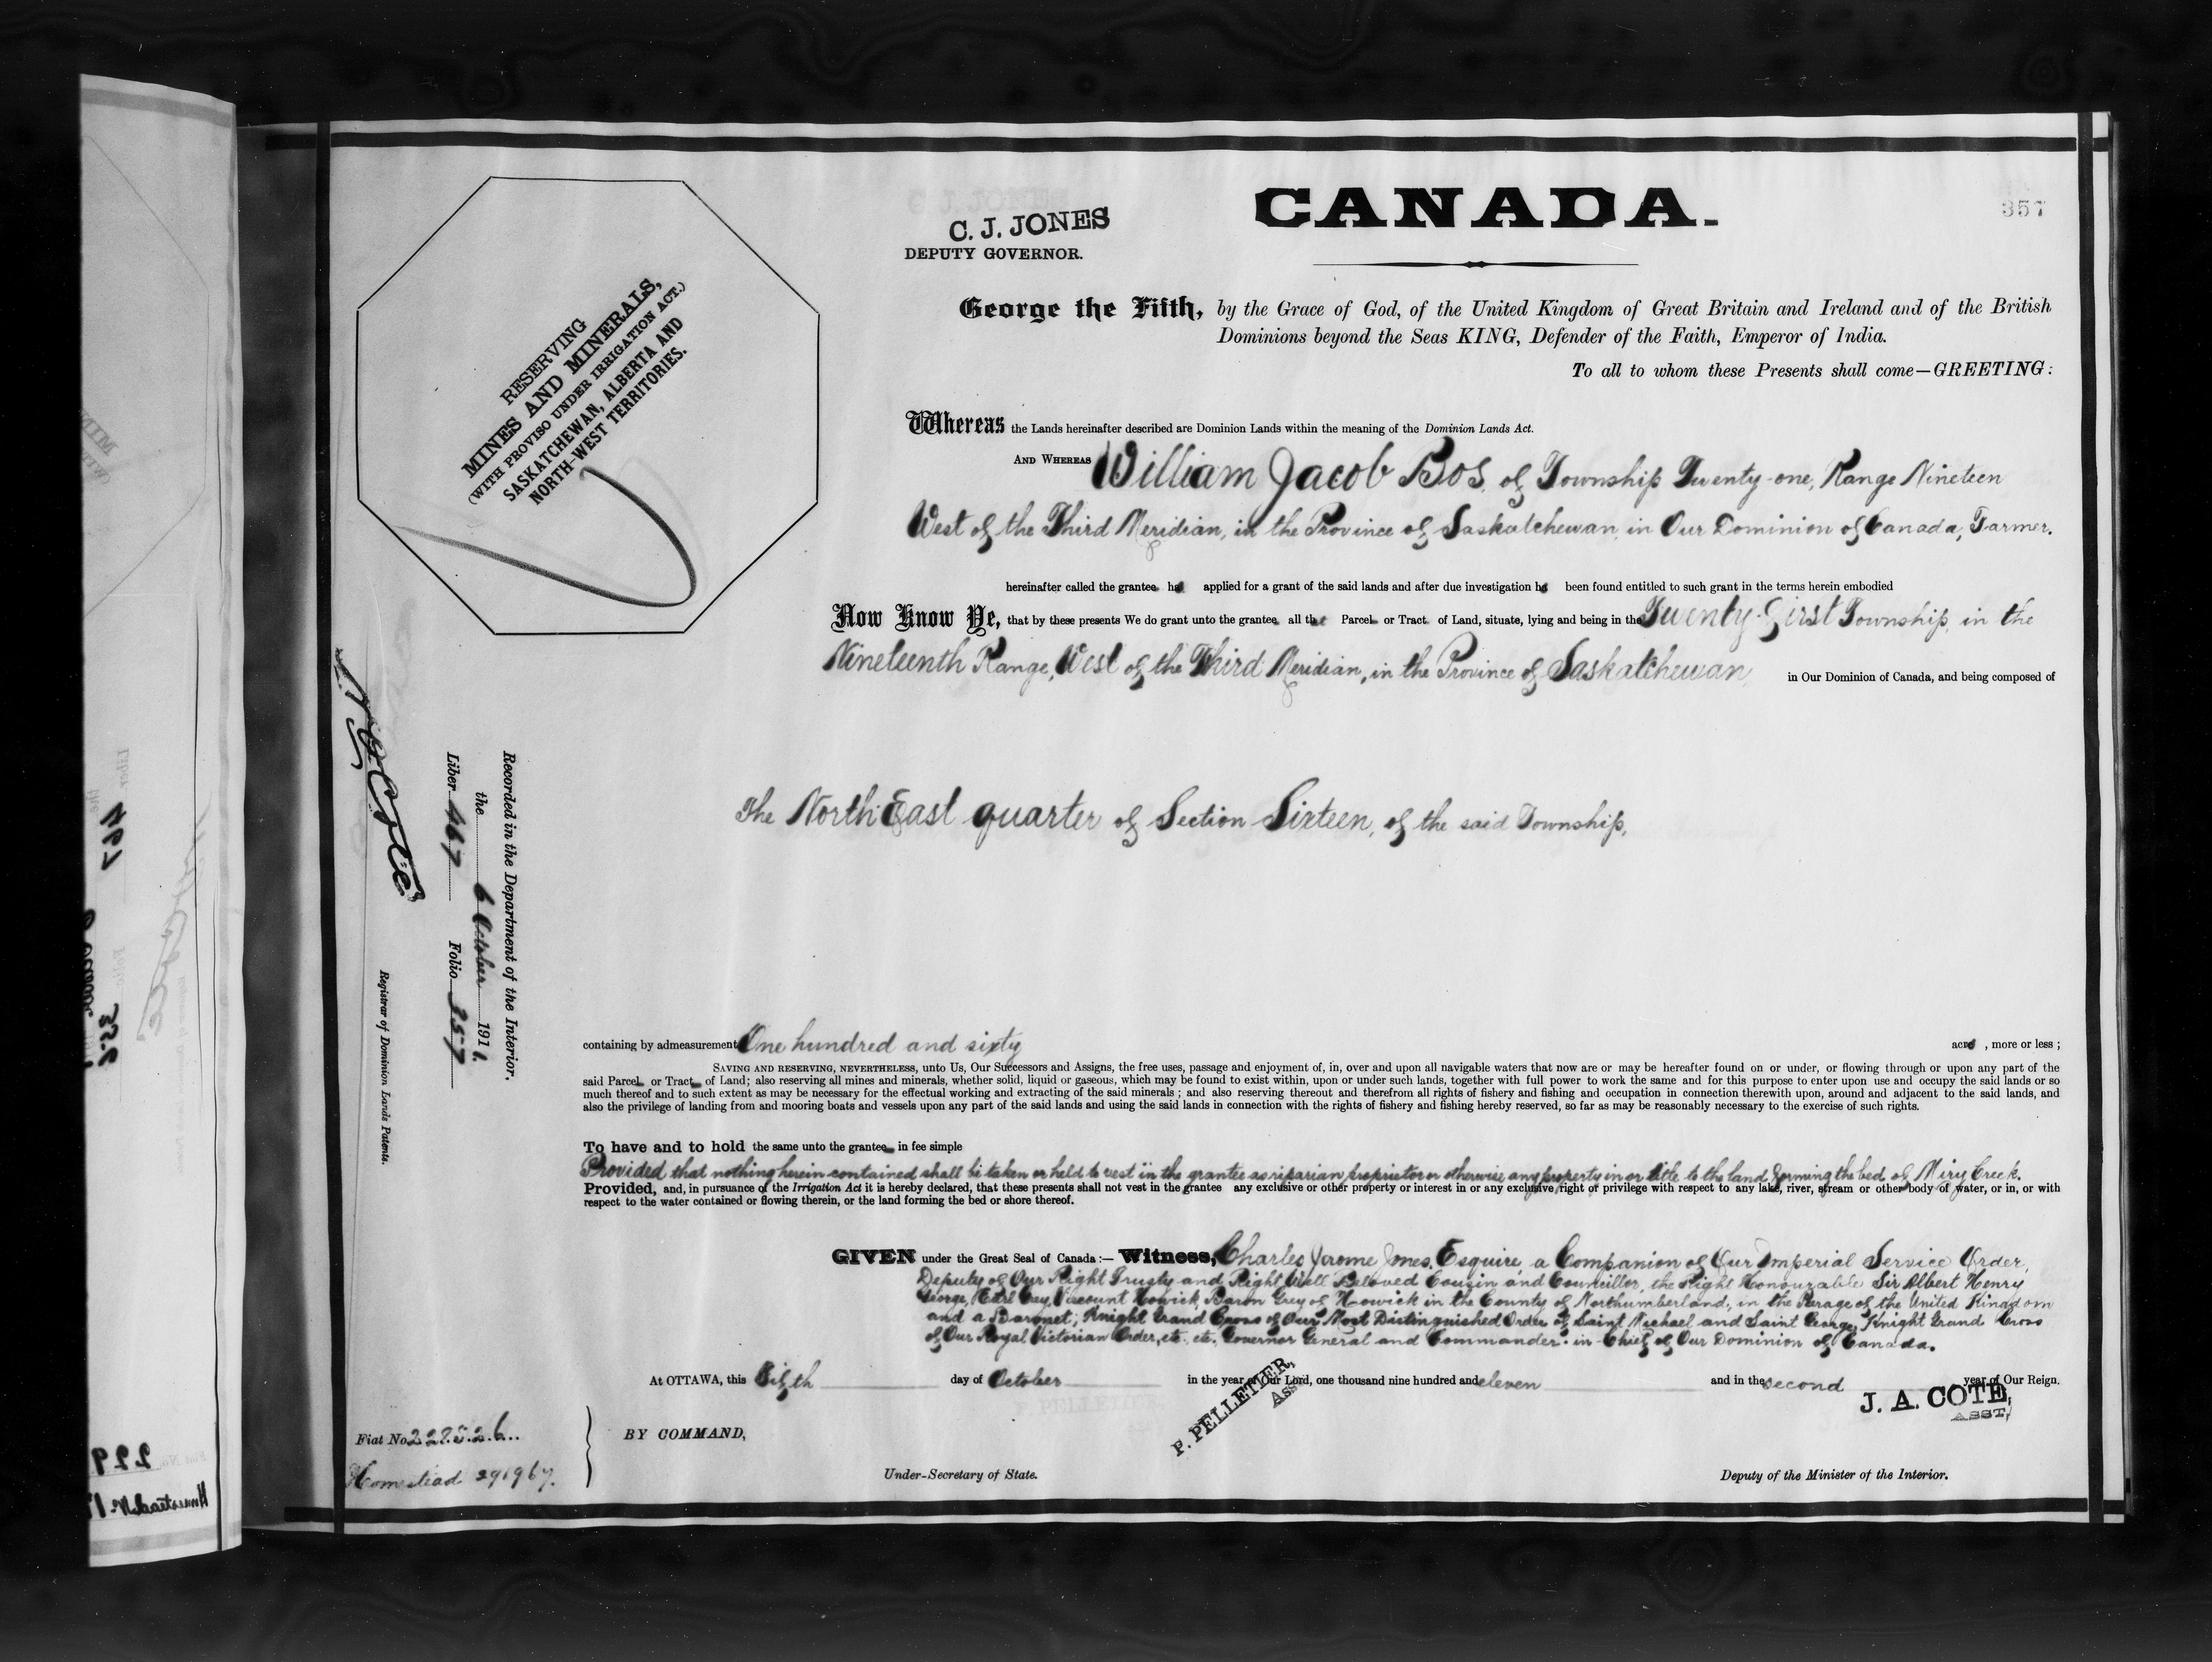 CANADA.
357
C. J. JONES
DEPUTY GOVERNOR.
RESERVING
MINES AND MINERALS,
(WITH PROVISO UNDER IRRIGATION ACT.)
SASKATCHEWAN, ALBERTA AND
NORTH-WEST TERRITORIES.
George the Fifth, by the Grace of God, of the United Kingdom of Great Britain and Ireland and of the British
Dominions beyond the Seas KING, Defender of the Faith, Emperor of India.
To all to whom these Presents shall come—GREETING:
Whereas the Lands hereinafter described are Dominion Lands within the meaning of the Dominion Lands Act.
AND WHEREAS William Jacob Bos, of Township Twenty-one, Range Nineteen
West of the Third Meridian, in the Province of Saskatchewan, in Our Dominion of Canada, Farmer.
hereinafter called the grantee has applied for a grant of the said lands and after due investigation has been found entitled to such grant in the terms herein embodied
Now Know Ye, that by these presents We do grant unto the grantee all that Parcel or Tract of Land, situate, lying and being in the Twenty-First Township, in the
Nineteenth Range, West of the Third Meridian, in the Province of Saskatchewan, in Our Dominion of Canada, and being composed of
The North East quarter of Section Sixteen, of the said Township,
containing by admeasurement One hundred and sixty acres, more or less;
SAVING AND RESERVING, NEVERTHELESS, unto Us, Our Successors and Assigns, the free uses, passage and enjoyment of, in, over and upon all navigable waters that now are or may be hereafter found on or under, or flowing through or upon any part of the
said Parcel or Tract of Land; also reserving all mines and minerals, whether solid, liquid or gaseous, which may be found to exist within, upon or under such lands, together with full power to work the same and for this purpose to enter upon use and occupy the said lands or so
much thereof and to such extent as may be necessary for the effectual working and extracting of the said minerals; and also reserving thereout and therefrom all rights of fishery and fishing and occupation in connection therewith upon, around and adjacent to the said lands, and
also the privilege of landing from and mooring boats and vessels upon any part of the said lands and using the said lands in connection with the rights of fishery and fishing hereby reserved, so far as may be reasonably necessary to the exercise of such rights.
To have and to hold the same unto the grantee in fee simple
Provided that nothing herein contained shall be taken or held to vest in the grantee as riparian proprietor or otherwise any property in or title to the land forming the bed of Miry Creek.
Provided, and, in pursuance of the Irrigation Act it is hereby declared, that these presents shall not vest in the grantee any exclusive or other property or interest in or any exclusive right of privilege with respect to any lake, river, stream or other body of water, or in, or with
respect to the water contained or flowing therein, or the land forming the bed or shore thereof.
GIVEN under the Great Seal of Canada:— Witness, Charles Jerome Jones, Esquire, a Companion of Our Imperial Service Order,
Deputy of Our Right Trusty and Right Well Beloved Cousin and Councillor, the Right Honourable Sir Albert Henry
George, Earl Grey, Viscount Howick, Baron Grey of Howick in the County of Northumberland, in the Peerage of the United Kingdom
and a Baronet; Knight Grand Cross of Our Most Distinguished Order of Saint Michael and Saint George, Knight Grand Cross
of Our Royal Victorian Order, etc. etc. Governor General and Commander-in-Chief of Our Dominion of Canada.
At OTTAWA, this Sixth day of October in the year of Our Lord, one thousand nine hundred and eleven and in the second year of Our Reign.
P. PELLETIER,
Asst
J. A. COTE,
ASST,
BY COMMAND,
Under-Secretary of State.
Deputy of the Minister of the Interior.
Fiat No. 227526..
Homestead 291967.
Recorded in the Department of the Interior.
the 6 October 1911.
Liber 467 Folio 357
N O Coté
Registrar of Dominion Lands Patents.